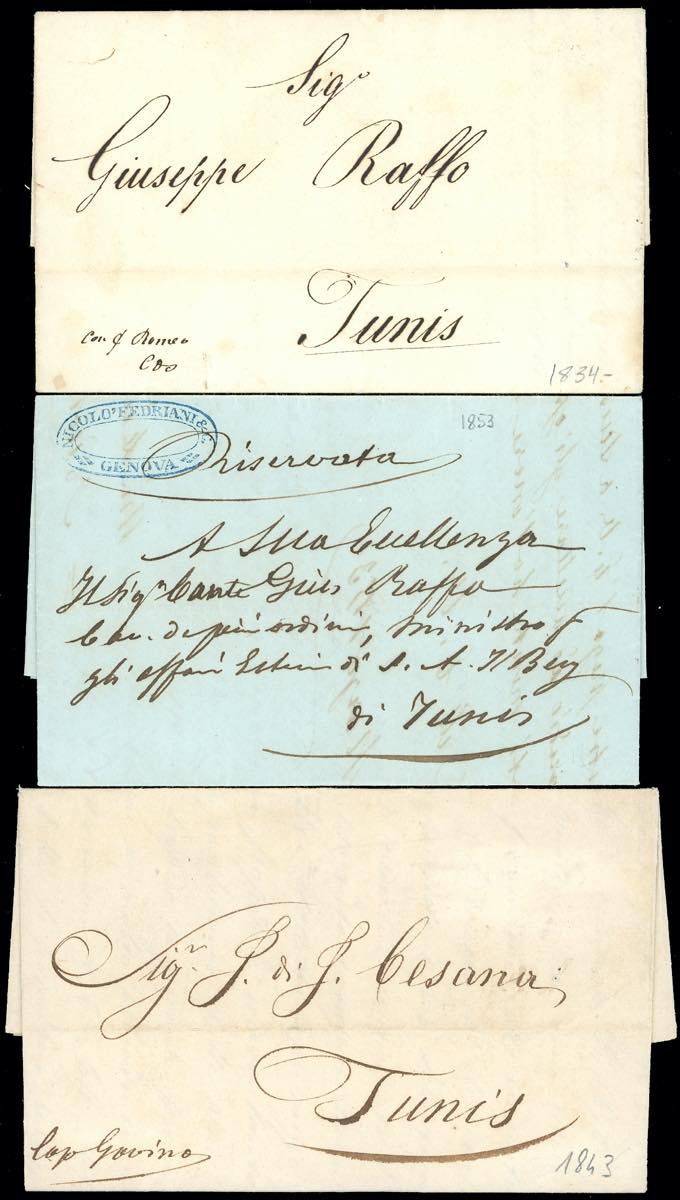 Sigr
Giuseppe Raffo
Tunis
con
Romeo
1834-
NICOLO' FEDRIANI & C.
GENOVA
1853
Riservata
A Sua Eccellenza
Il Sigr Conte Gius Raffo
Cav. di più ordini, Ministro
gli affari Esteri di S. A. Il Bey
di Tunis
Sigr J. di J. Cesana
Tunis
Cap Gavino
1843